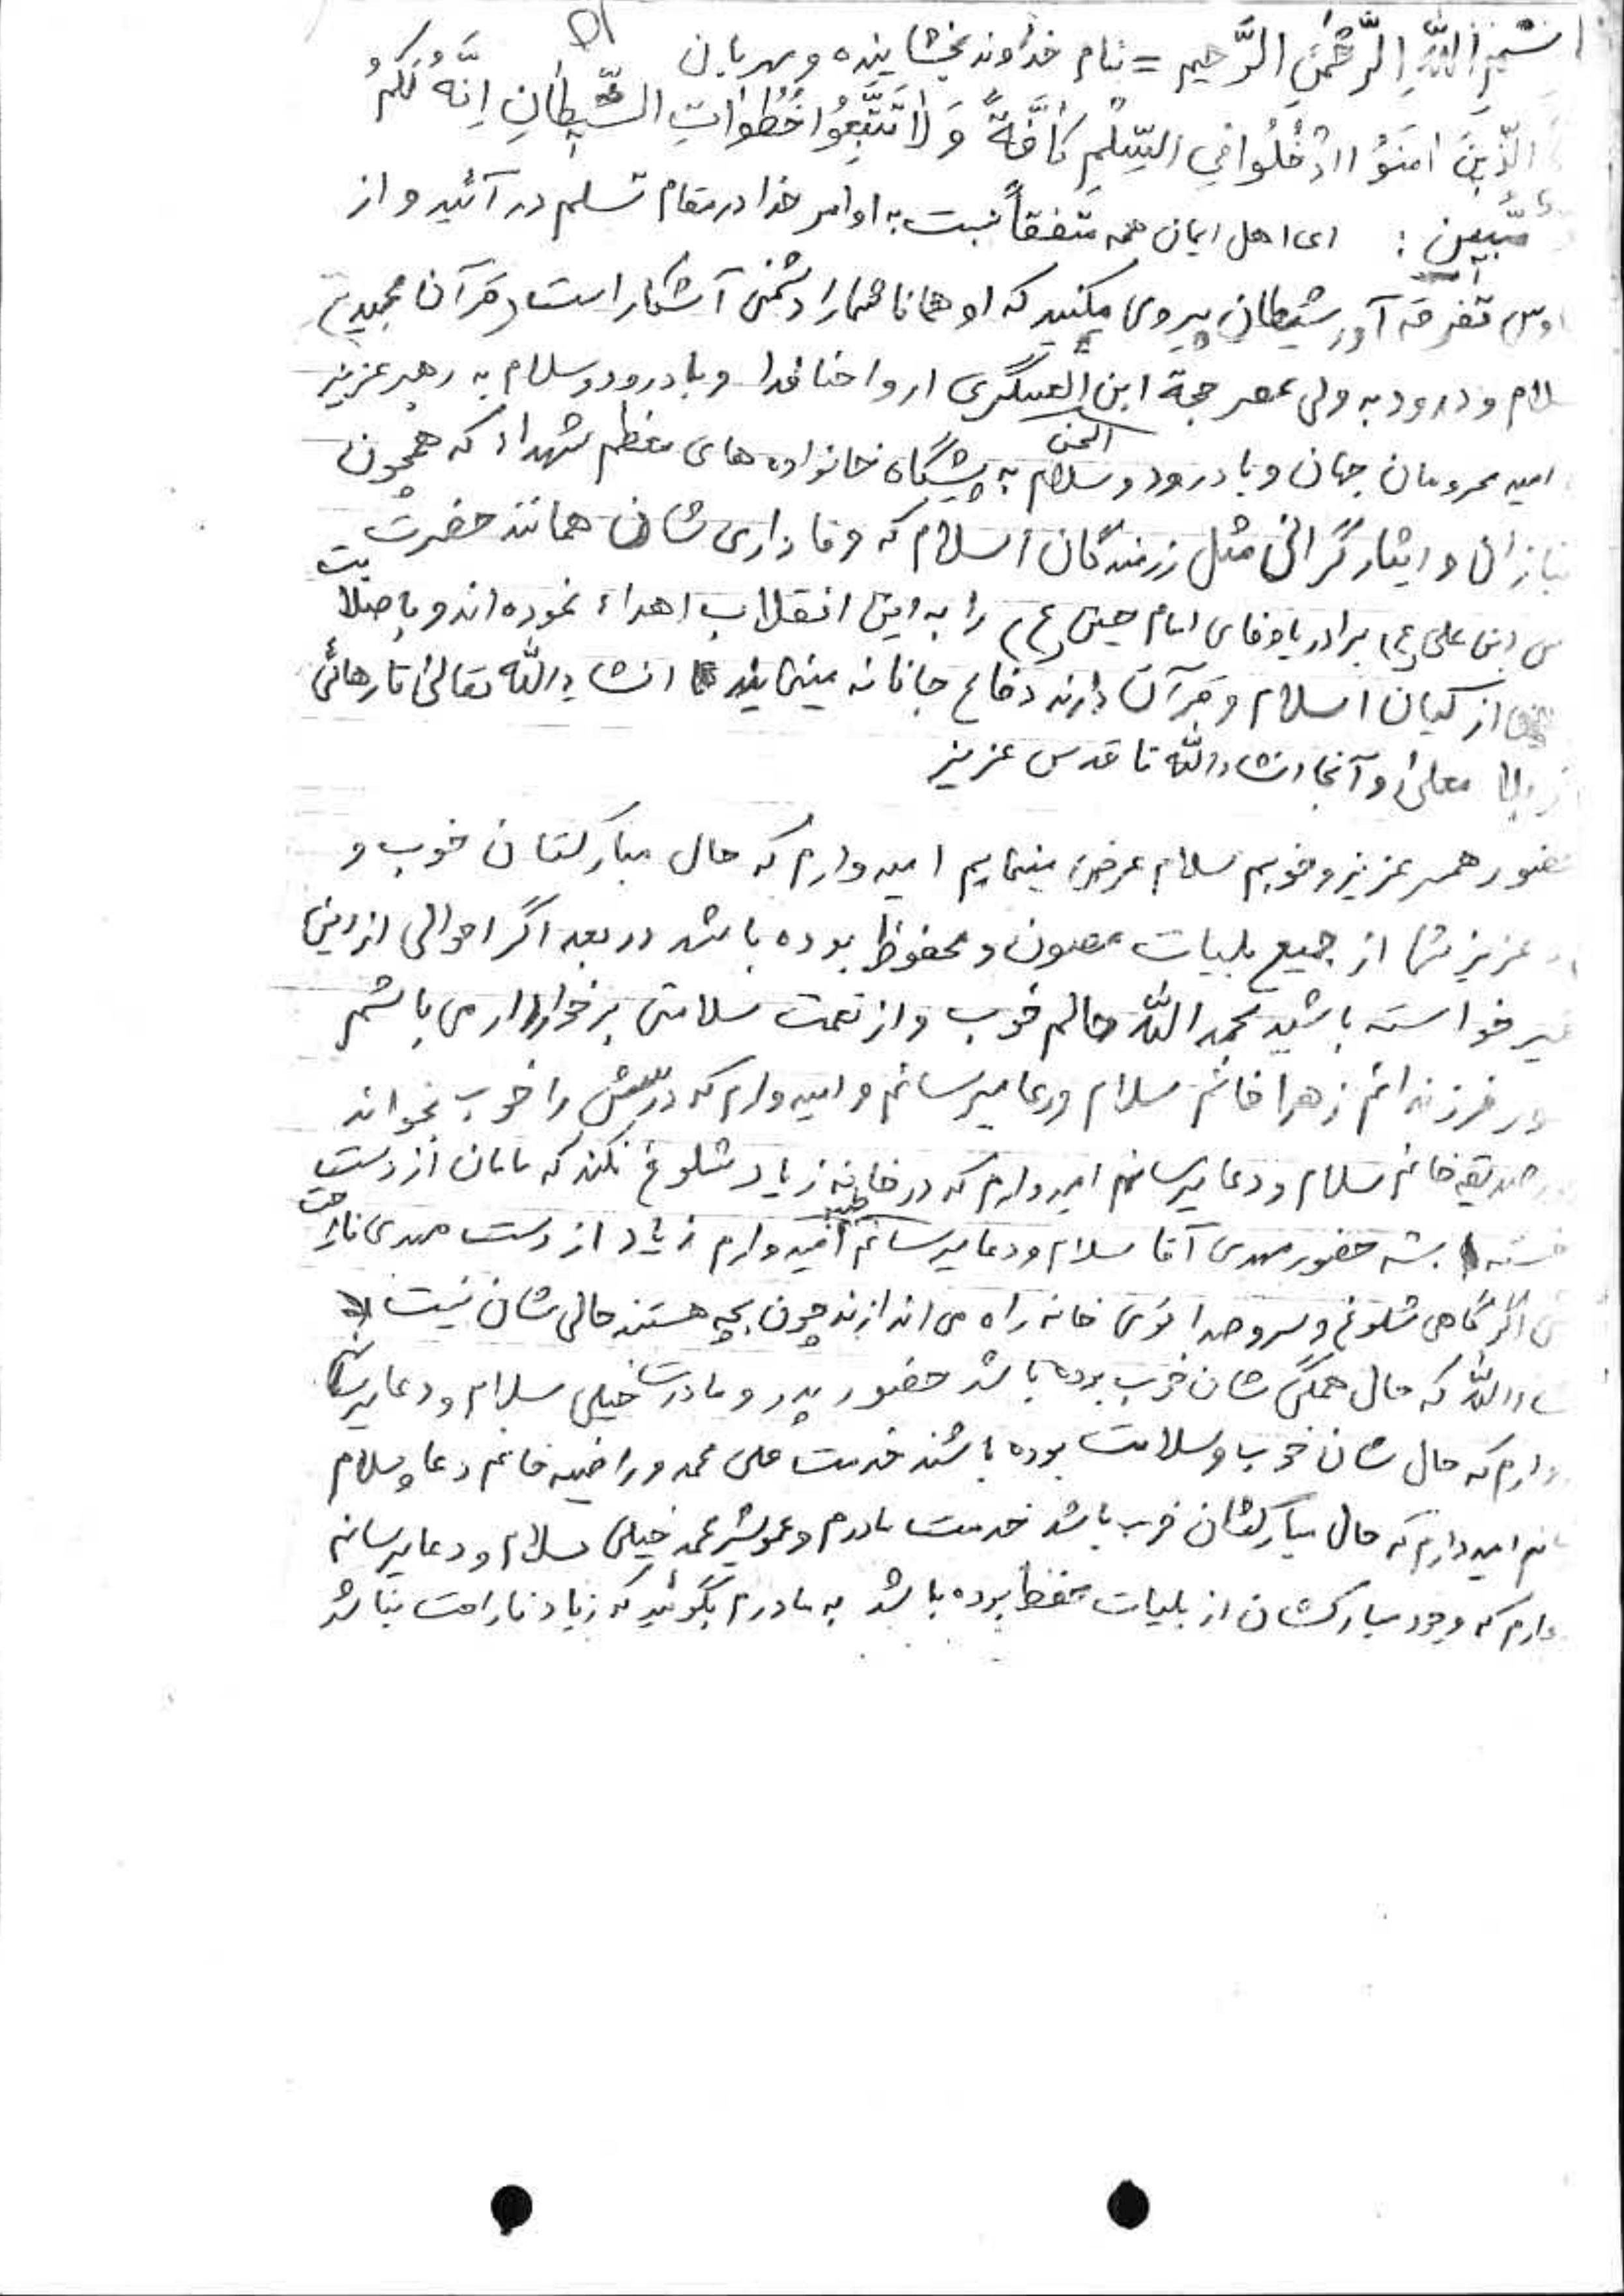 بِسْمِ اللهِ الرَّحْمٰنِ الرَّحیم = بنام خداوند بخشاینده و مهربان
الَّذینَ امَنوُا ادْخُلُوا فِی السِّلْمِ کافَّةً وَ لاٰ تَتَّبِعُوا خُطُوٰاتِ الشَّیطٰانِ اِنَّهُ لَکُمْ
مُّبین : ای اهل ایمان همه متفقاً نسبت به اوامر خدا در مقام تسلیم در آئید و از
تفرقه آور شیطان پیروی مکنید که او همانا شما را دشمنی آشکار است (قرآن مجید)
سلام و درود به ولی عصر حجة ابن الحسن العسگری ارواحنا فدا و با درود و سلام به رهبر عزیز
امید محرومان جهان و با درود و سلام به پیشگاه خانواده های معظم شهداء که همچون
و ایثارگرانی مثل رزمندگان اسلام که وفاداری شان همانند حضرت
ابن علی (ع) برادر باوفای امام حسین (ع) را به این انقلاب اهداء نموده اند و با صلابت
از کیان اسلام و قرآن دارند دفاع جانانه مینمایند انشاءالله تعالی تا رهائی
معلیٰ و آنجا انشاءالله تا قدس عزیز
حضور همسر عزیز و خوبم سلام عرض مینمایم امیدوارم که حال مبارکتان خوب و
عزیز شما از جمیع بلیات مصون و محفوظ بوده باشد در بعد اگر احوالی از این
خواسته باشید بحمدالله حالم خوب و از نعمت سلامتی برخوردار می باشم
فرزندانم زهرا خانم سلام و دعا میرسانم و امیدوارم که درسش را خوب بخواند
صدیقه خانم سلام و دعا میرسانم امیدوارم که در خانه زیاد شلوغ نکند که مامان از دست
خسته بشه حضور مهدی آقا سلام و دعا میرسانم امیدوارم زیاد از دست مهدی ناراحت
اگر گاهی شلوغ و سر و صدا توی خانه راه می اندازند چون بچه هستند حالی شان نیست
که حال همگی شان خوب بوده باشد حضور پدر و مادرت خیلی سلام و دعا میرسانم
که حال شان خوب و سلامت بوده باشند خدمت علی محمد و راضیه خانم دعا و سلام
امیدوارم که حال مبارکشان خوب باشد خدمت مادرم و عمو شیرمحمد خیلی سلام و دعا میرسانم
که وجود مبارکشان از بلیات حفظ بوده باشد به مادرم بگوئید که زیاد ناراحت نباشد